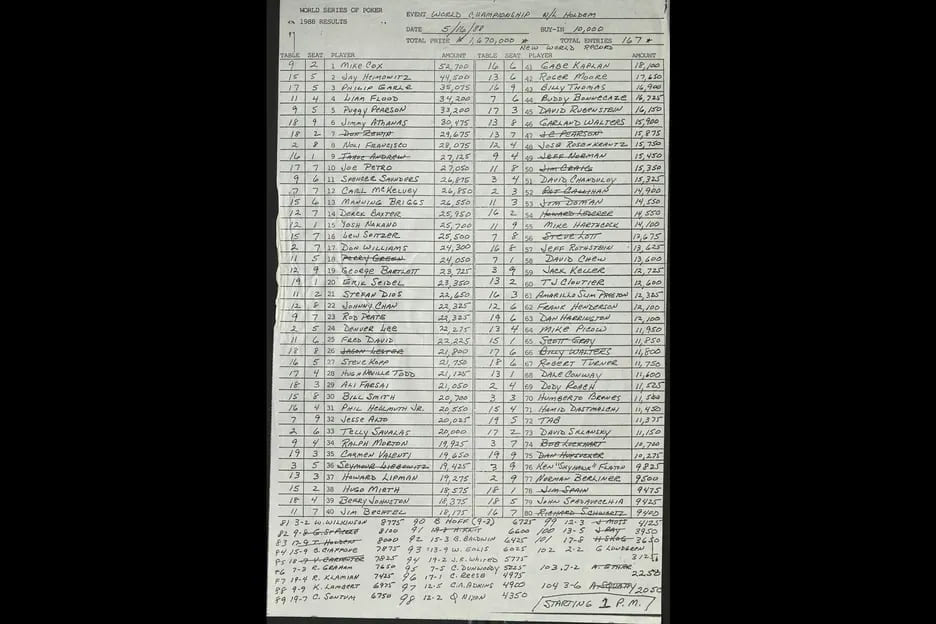 WORLD SERIES OF POKER
1988 RESULTS
EVENT WORLD CHAMPIONSHIP N/L HOLDEM
DATE 5/16/88 BUY-IN 10,000
TOTAL PRIZE $1,670,000 * TOTAL ENTRIES 167 *
NEW WORLD RECORD
TABLE SEAT PLAYER AMOUNT TABLE SEAT PLAYER AMOUNT
9 2 1 MIKE COX 52,700 16 6 41 GABE KAPLAN 18,100
15 5 2 JAY HEIMOWITZ 44,500 13 6 42 ROGER MOORE 17,650
17 5 3 PHILIP GARLE 35,075 16 9 43 BILLY THOMAS 16,900
11 4 4 LIAM FLOOD 34,200 7 6 44 BUDDY BONNECAZE 16,725
9 5 5 PUGGY PEARSON 33,200 17 3 45 DAVID RUBENSTEIN 16,150
18 9 6 JIMMY ATHANAS 30,475 13 8 46 GARLAND WALTERS 15,900
18 2 7 DON 29,675 13 7 47 J.C. PEARSON 15,875
2 8 8 NOLI FRANCISCO 28,075 12 4 48 JOSE ROSENKRANTZ 15,750
16 1 9 ANDREW 27,125 9 4 49 JEFF NORMAN 15,450
17 7 10 JOE PETRO 27,050 11 8 50 JIM CRAIG 15,350
9 6 11 SPENCER SAUNDERS 26,875 3 4 51 DAVID 15,325
7 7 12 CARL McKELVEY 26,850 2 3 52 CALLIHAN 14,900
15 6 13 MANNING BRIGGS 26,550 11 3 53 JIM DOMAN 14,550
12 7 14 DEREK BAXTER 25,950 16 2 54 HOWARD LEDERER 14,550
12 1 15 YOSH NAKANO 25,700 11 9 55 MIKE HARTHCOCK 14,100
15 7 16 LEW SPITZER 25,500 7 8 56 STEVE LOTT 13,675
2 7 17 DON WILLIAMS 24,300 16 8 57 JEFF ROTHSTEIN 13,625
11 5 18 PERRY GREEN 24,050 7 1 58 DAVID CHEW 13,600
12 9 19 GEORGE BARTLETT 23,725 3 9 59 JACK KELLER 12,725
19 1 20 ERIK SEIDEL 23,350 13 2 60 TJ CLOUTIER 12,600
11 2 21 STEFAN DIOS 22,650 16 3 61 AMARILLO SLIM PRESTON 12,325
12 8 22 JOHNNY CHAN 22,325 12 6 62 FRANK HENDERSON 12,100
9 7 23 ROD PEATE 22,325 19 6 63 DAN HARRINGTON 12,100
2 5 24 DENVER LEE 22,275 13 4 64 MIKE PICOW 11,950
11 6 25 FRED DAVID 22,225 15 1 65 SCOTT GRAY 11,850
18 8 26 JASON LESTER 21,800 17 6 66 BILLY WALTERS 11,800
16 5 27 STEVE KOPP 21,750 18 6 67 ROBERT TURNER 11,750
17 4 28 HUGH NEVILLE TODD 21,125 13 1 68 DALE CONWAY 11,600
18 3 29 ALI FARSAI 21,050 2 4 69 DODY ROACH 11,525
15 8 30 BILL SMITH 20,700 3 3 70 HUMBERTO BRENES 11,500
16 4 31 PHIL HELLMUTH JR. 20,550 15 4 71 HAMID DASTMALCHI 11,450
7 9 32 JESSE ALTO 20,025 19 5 72 TAB 11,375
2 6 33 TELLY SAVALAS 20,000 17 2 73 DAVID SKLANSKY 11,150
9 4 34 RALPH MORTON 19,925 3 7 74 BOB LOCKHART 10,700
19 3 35 CARMEN VALENTI 19,650 19 9 75 DAN 10,275
3 5 36 SEYMOUR LEIBOWITZ 19,425 3 9 76 KEN "SKYHAWK" FLATON 9825
13 3 37 HOWARD LIPMAN 19,275 2 9 77 NORMAN BERLINER 9500
15 2 38 HUGO MIETH 18,575 18 1 78 JIM SPAIN 9475
18 4 39 BERRY JOHNSTON 18,375 18 5 79 JOHN SPADAVECCHIA 9425
11 7 40 JIM BECHTEL 18,175 16 7 80 RICHARD SCHWARTZ 9400
81 3-2 W. WILKINSON 8775 90 B HOFF (9-3) 6725 99 12-3 J MOSS 4125
82 9-8 G. ST PIERRE 8100 91 6600 100 13-5 J 3950
83 17-9 T. HOLDEN 8000 92 15-3 B. BALDWIN 6425 101 17-8 H SKOG 3650
84 15-9 B. CIAFFONE 7875 93 13-9 W. EOLIS 6025 102 2-2 G LUNDGREN 3125
85 18-9 V. CARPENTER 7825 94 19-2 J.E. WHITED 5775
86 7-3 R. GRAHAM 7650 95 7-5 C. DUNWOODY 5225 103 7-2 A. 2250
87 19-4 R. KLAMIAN 7425 96 17-1 C. REESE 4975
88 9-9 K. LAMBERT 6975 97 12-5 C.A. ADKINS 4900 104 3-6 A. 2050
89 19-7 C. SONTUM 6750 98 12-2 Q NIXON 4350
STARTING 1 P.M.